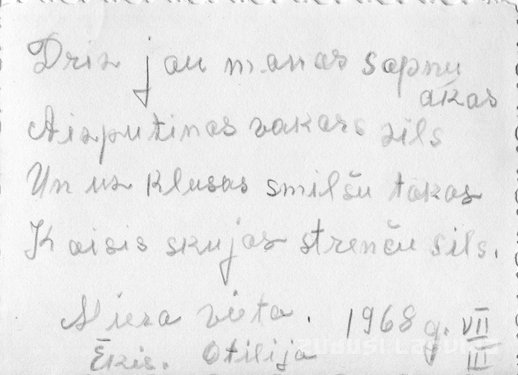 Driz jau manas sapņu
akas
Aizputinas vakars zils
Un uz klusas smilšu takas
Kaisis skujas strenču sils.
Miera vieta. 1968 g. VII
III
Ēkis. Otilija